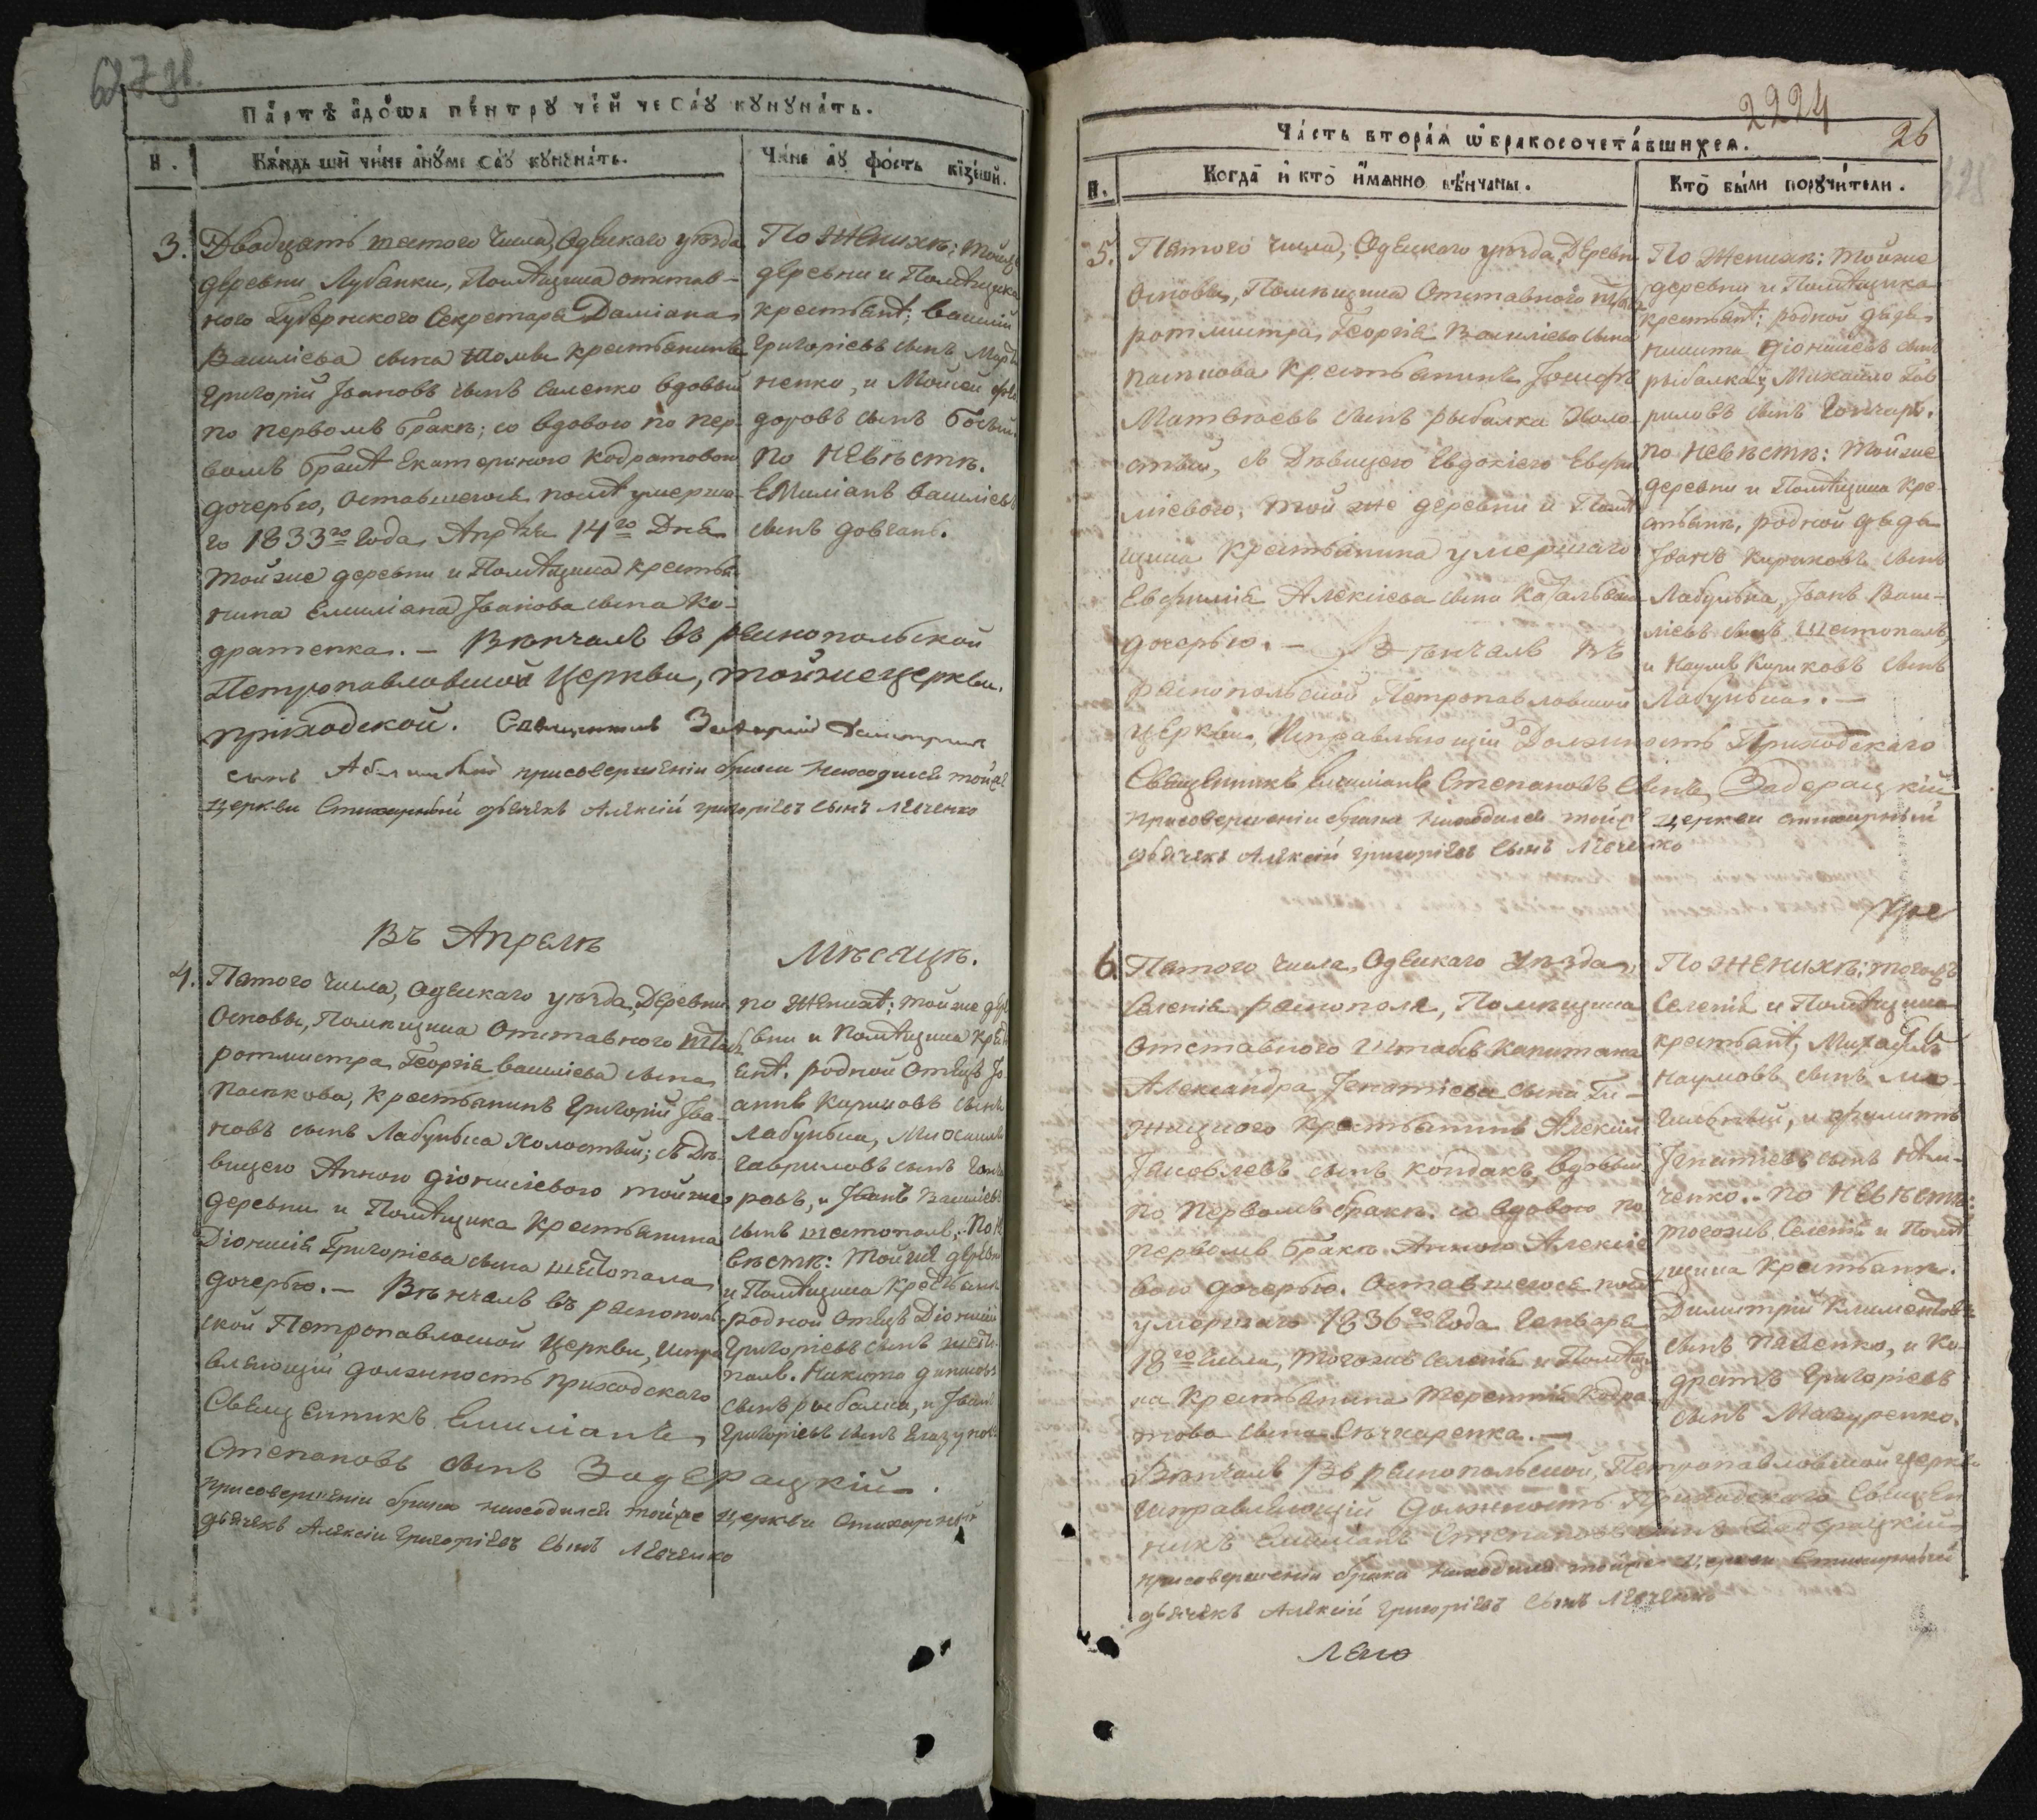 627 
Па́ртѣ а҆до́ѡа пе́нтрꙋ че́й че сáꙋ кꙋнꙋна́тъ.
Н.
Кѫ́ндъ ши чи́не а҆нꙋ́ме са́ꙋ кꙋнꙋна́тъ.
Чи́не аꙋ фо́стъ кїзе́шй.
3.
Двадцать числа, Одескаго уѣзда
деревни Лубанки, Помѣщика отстав-
ного Губернскаго Секретаря Даміана
Василіева сына крестьянинъ
Григорій Івановъ сынъ Саленко вдовый
по первомъ бракѣ; со вдовою по пер-
вомъ бракѣ Екатериною Кодратовою
дочерью, оставшеюся послѣ умерша-
го 1833го Года, Апрѣля 14го Дня
тойже деревни и Помѣщика крестья-
нина Емиліана Іванова сына Ко-
дратенка. – Вѣнчалъ въ распопольской
Петропавловской Церкви, тойже церкви
приходской. Священникъ Захарій Димитріевъ
сынъ присовершеніи брака находился тойже
церкви Стихарный дьячекъ Алексій Григоріевъ сынъ Левченко
По Женихѣ: тойже
деревни и Помѣщика
крестьянѣ: василій
Григоріевъ сынъ
ненко, и Мойсей Фео-
доровъ сынъ
По Невѣстѣ.
Емиліанъ василіевъ
сынъ довганъ.
Въ Апрелѣ
Мѣсяцѣ.
4.
Пятого числа, одескаго уѣзда, Деревни
Основы, Помѣщика Отставного Штабъ
ротмистра Георгія василіева сына
Пасткова, крестьянинъ Григорій Іва-
новъ сынъ Лабунька Холостый; съ Дѣ-
вицею Анною діонисіевою тойже
деревни и Помѣщика крестьянина
Діонисія Григоріева сына шестопала
дочерью. – Вѣнчалъ въ распополь-
ской Петропавловской церкви, Испра-
вляющій должность приходскаго
Священникъ Емиліанъ
Степановъ сынъ Задерацкій.
присовершеніи брака находился тойже церкви Стихарный
дьячекъ Алексій Григоріевъ сынъ Левченко
по Женихѣ: тойже дере-
вни и Помѣщика крестья
енѣ. родной отецъ Іо-
аннъ Кириковъ сынъ
Лабунька, Михаилъ
Гавриловъ сынъ Гонча
ровъ, и Іванъ Василіевъ
сынъ шестопалъ, По Н
вѣстѣ: тойже деревни
и Помѣщика крестьян
родной отецъ Діонисій
Григоріевъ сынъ шесто-
палъ. Никита дионисовъ
сынъ рыбалка, и Іванъ
Григоріевъ сынъ
2224
26
Ча́сть втора́ѧ ѡ҆ бракосочета́вшихсѧ.
Н.
Когда̀ и҆ кто̀ и҆́мѧнно вѣ́нчаны.
Кто̀ бы́ли порꙋчи́тели.
5.
Пятого числа, Одескаго уѣзда, Деревни
Основы, Помѣщика Отставного Штабъ
ротмистра, Георгія Василіева сына
пасткова крестьянинъ Іосифъ
Матвѣевъ сынъ рыбалка Холо-
стый, съ Дѣвицею Евдокіею Евфи
міевою, той же деревни и Помѣ
щика крестьянина умершаго
Евфимія Алексіева сына
дочерью. – Вѣнчалъ въ
распопольской Петропавловской
церкви, Исправляющій Должность Приходскаго
Священникъ Емиліанъ Степановъ сынъ, Задерацкій
присовершеніи брака находился тойже церкви стихарный
дьячекъ Алексій Григоріевъ сынъ Левченко
По Женихѣ: тойже
деревни и Помѣщика
крестьянѣ: родной дядя
никита діонисіевъ сынъ
рыбалка, Михайло Гав-
риловъ сынъ Гончаръ.
по невѣстѣ: тойже
деревни и Помѣщика кре-
стьянѣ, родной дядя
Іванъ Кириковъ сынъ
Лабунька, Іванъ Васи-
ліевъ сынъ Шестопалъ,
и Наумъ Кириковъ сынъ
Лабунька. –
6.
Пятого числа, Одескаго Уѣзда,
Селенія распополя, Помѣщика
отставного Штабсъ Капитана
Александра, Ігнатіева сына Ги-
жицкого крестьянинъ Алексій
Іаковлевъ сынъ Кондакъ, вдовый
по первомъ бракѣ. со вдовою по
первомъ бракѣ Анною Алексіе-
вою дочерью. Оставшеюся послѣ
умершаго 1836го Года Генваря
18го числа, тогоже Селенія и Помѣщи
ка крестьянина Терентій Кодра
това сына Сѣчкаренка. –
Вѣнчалъ Въ распопольской, Петропавловской церкви
исправляющій Должность Приходскаго Священ
никъ Емиліанъ Степановъ сынъ Задерацкій
присовершеніи брака находился тойже церкви Стихарный
дьячекъ Алексій Григоріевъ сынъ Левченко
По Женихѣ: тогожъ
Селенія и Помѣщика
крестьянѣ, Михаилъ
Наумовъ сынъ Мо-
гильный, и Филиппъ
Ігнатіевъ сынъ
ченко.. По Невѣстѣ:
тогожъ Селенія и Помѣ
щика крестьяне.
Димитрій Климентовъ
сынъ Павенко, и Ко-
дратъ Григоріевъ
сынъ Мазуренко.